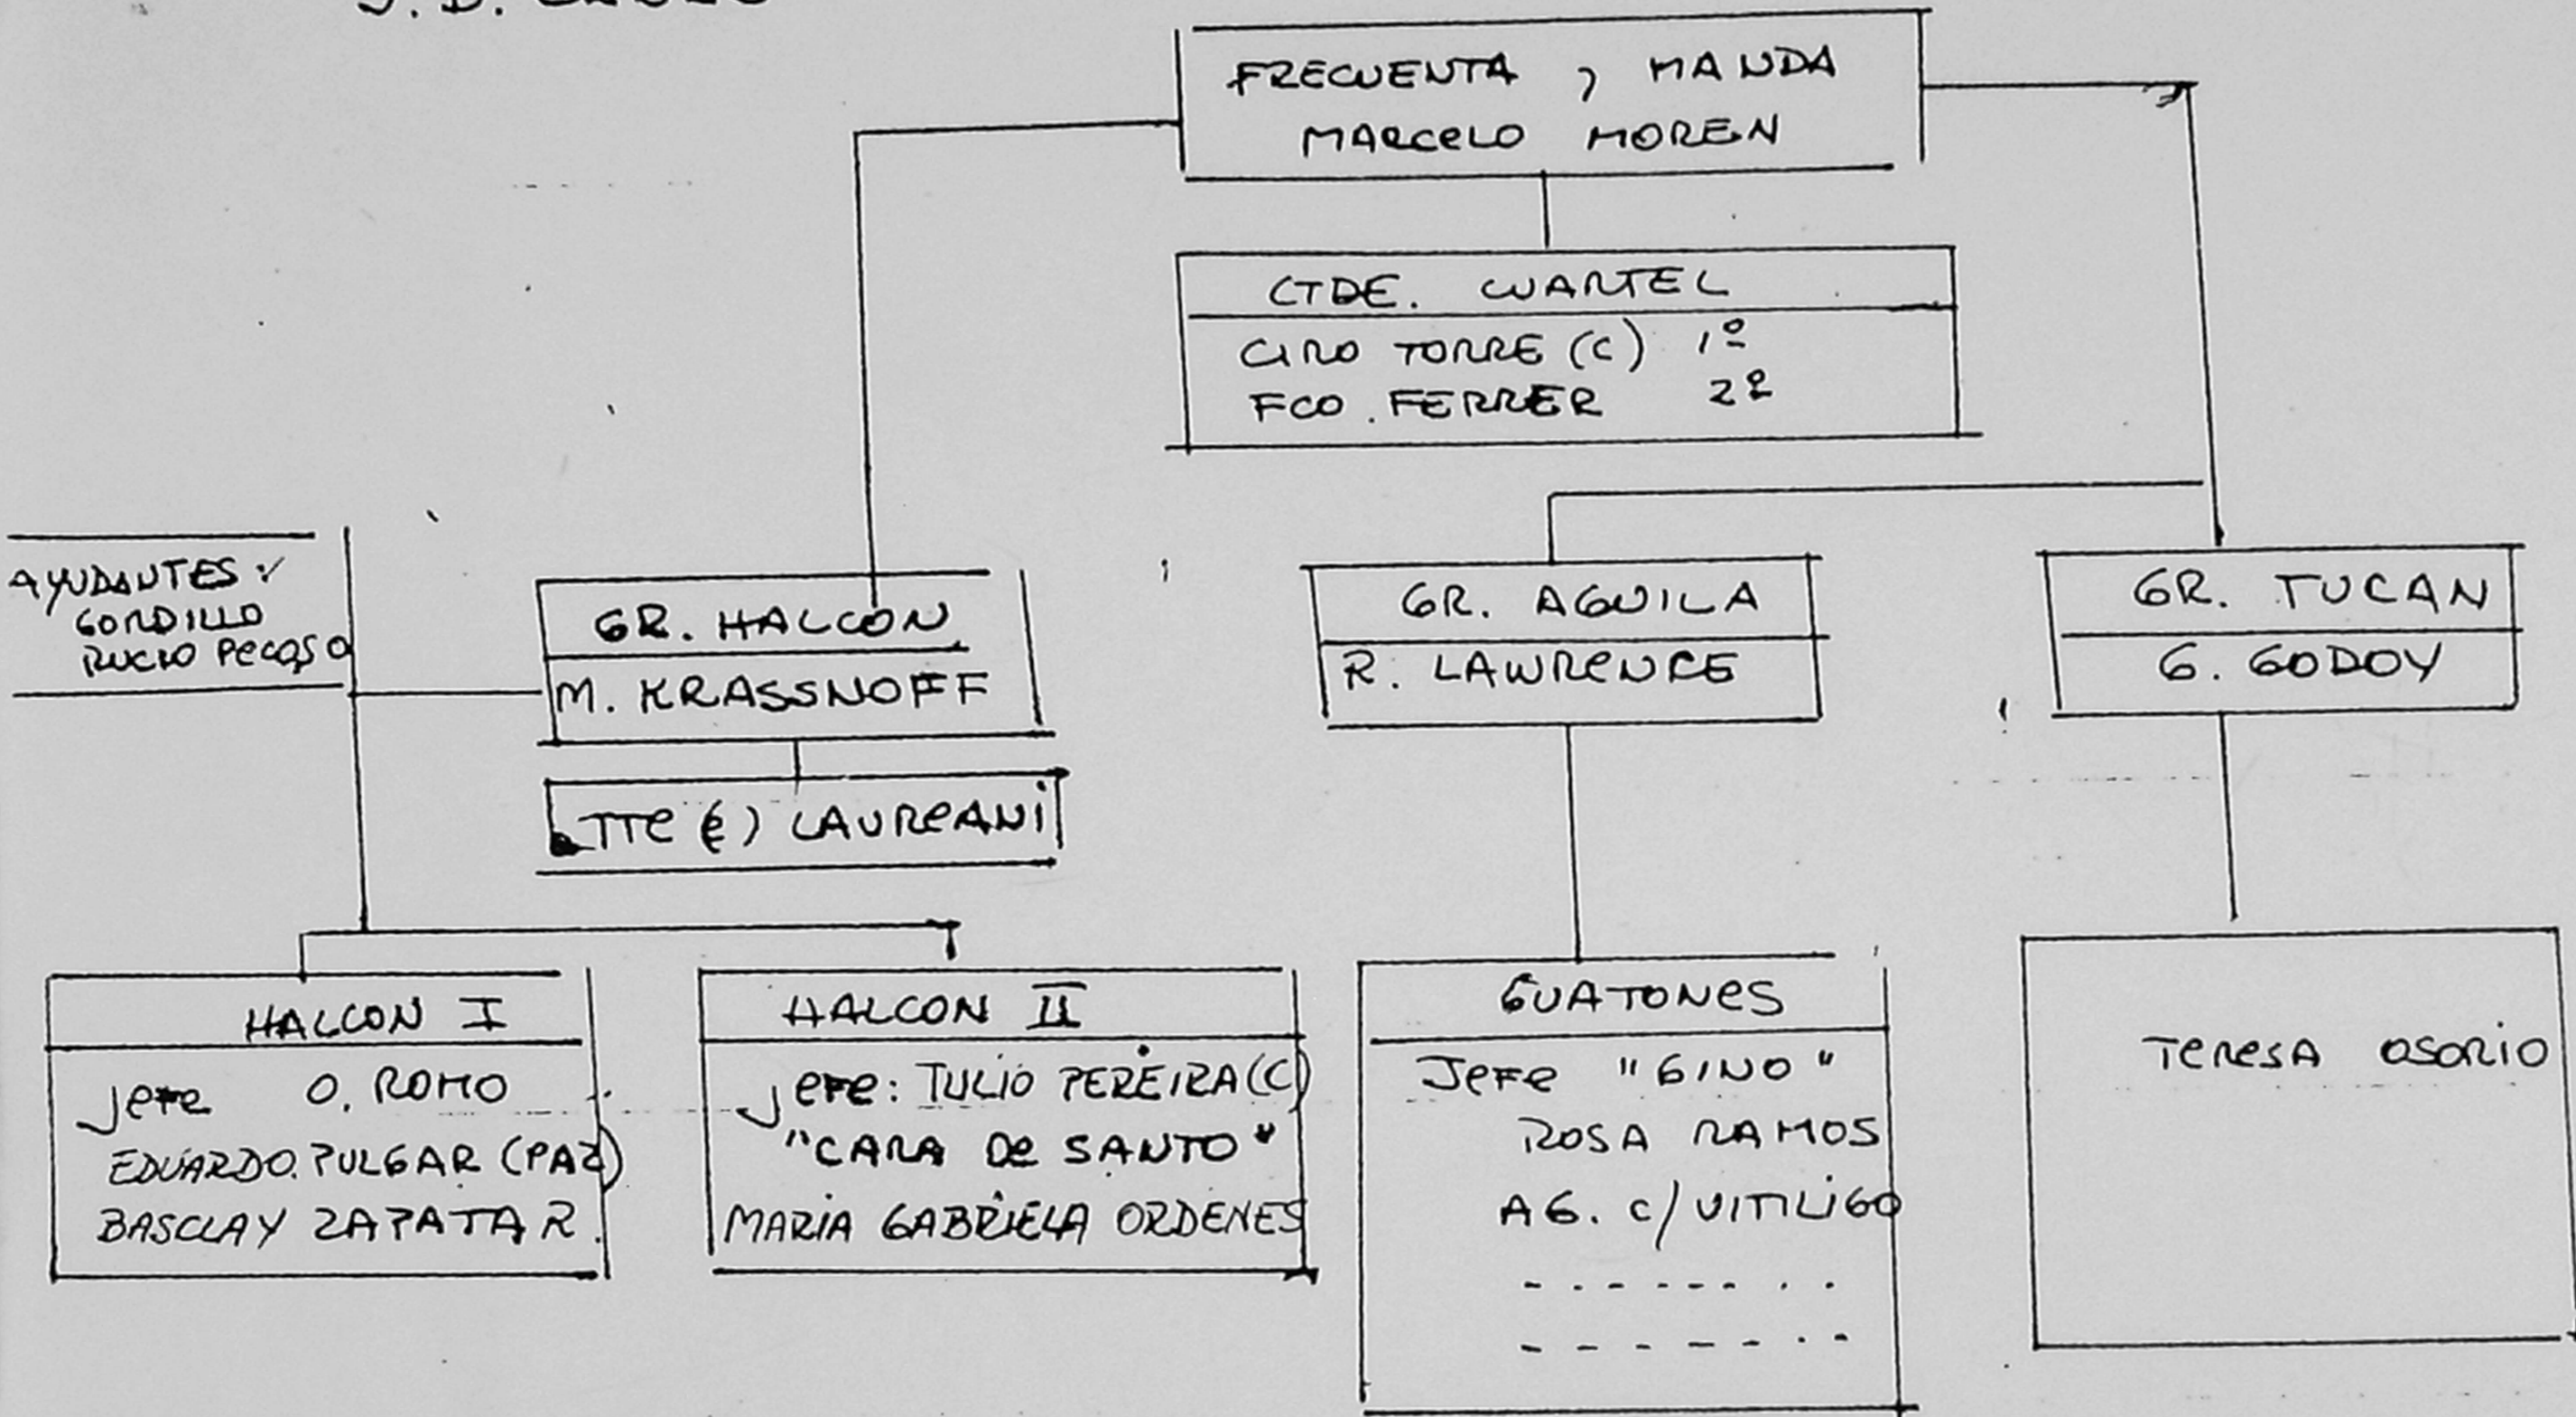 FRECUENTA , MANDA
MARCELO MOREN
CTDE. CUARTEL
CIRO TORRE (C) 1º
FCO. FERRER 2º
AYUDANTES:
GORDILLO
RUCIO PECOSO
GR. HALCON
M. KRASSNOFF
TTE (E) LAUREANI
GR. AGUILA
R. LAWRENCE
GR. TUCAN
G. GODOY
HALCON I
Jefe O. ROMO
EDUARDO PULGAR (PAZ)
BASCLAY ZAPATA R.
HALCON II
Jefe: TULIO PEREIRA (C)
"CARA DE SANTO"
MARIA GABRIELA ORDENES
GUATONES
Jefe "GINO"
ROSA RAMOS
AG. C/ VITILIGO
TERESA OSORIO